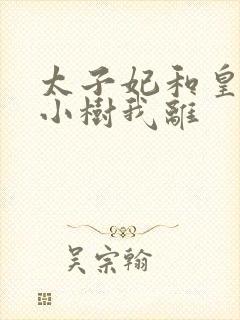 太子妃和皇
小樹我離
吴宗翰